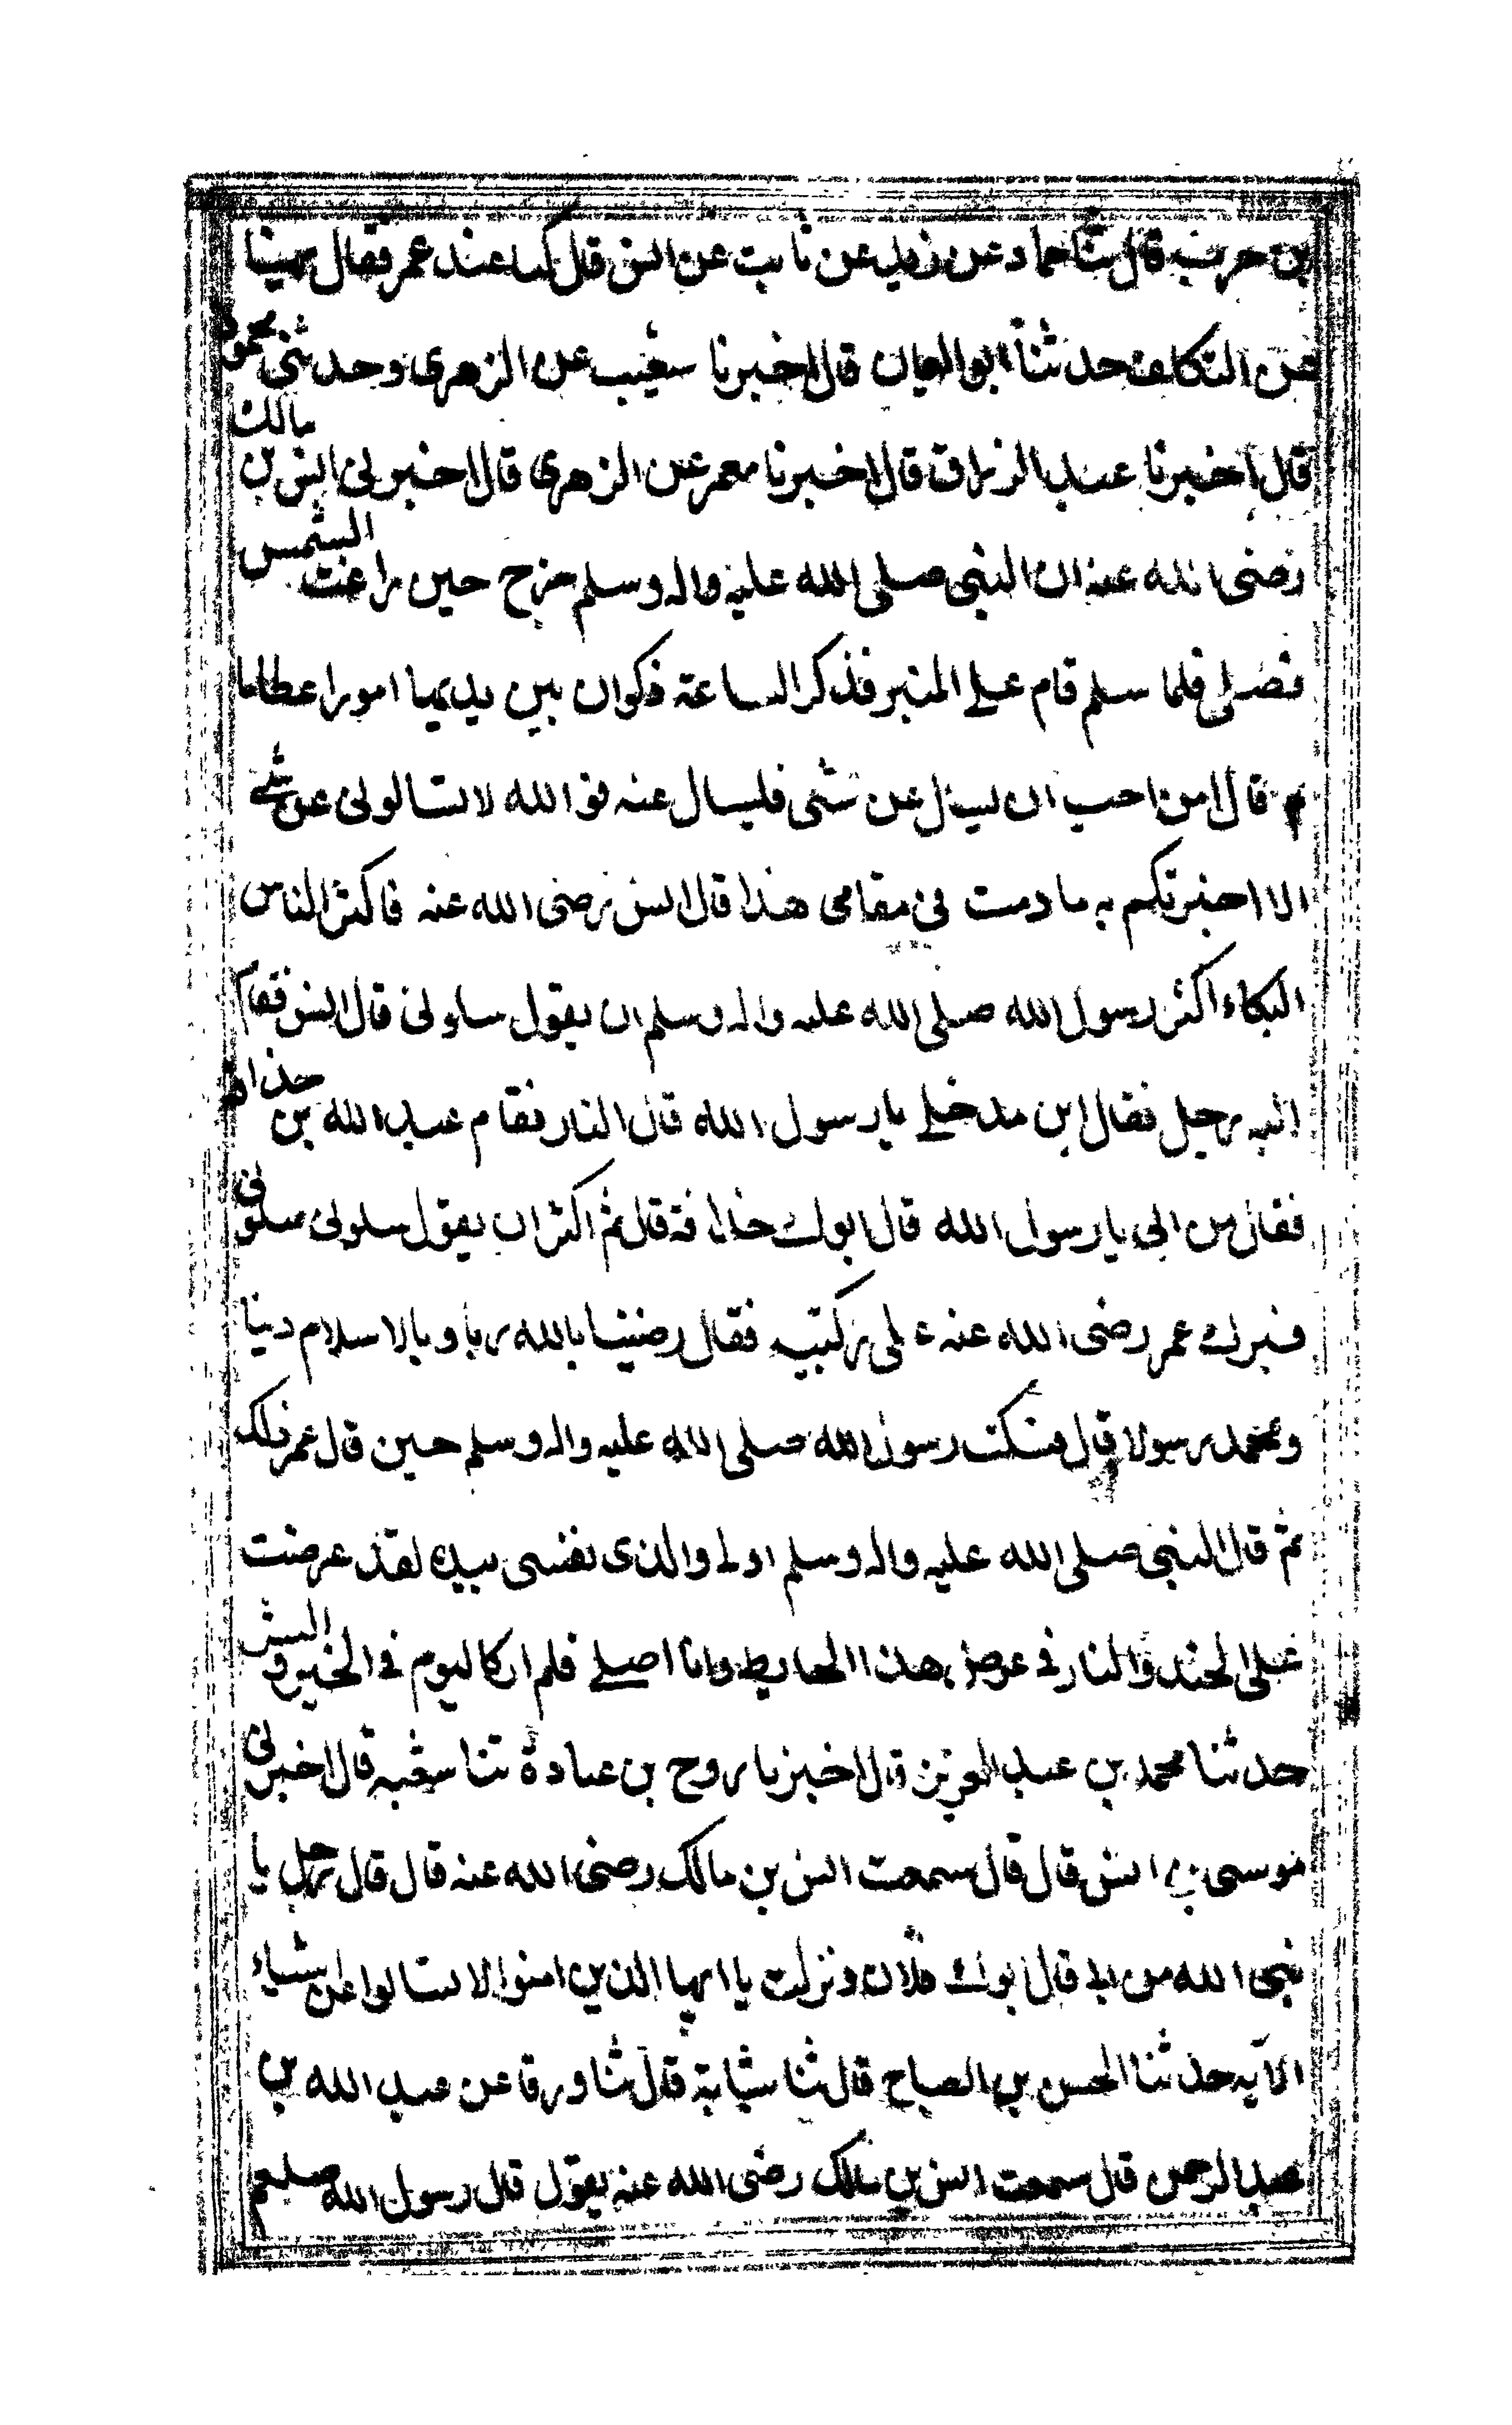 بن حرب قال ثنا حماد عن زيد عن ثابت عن انس قال كنا عند عمر فقال نهينا
عن التكلف حدثنا ابو اليمان قال اخبرنا شعيب عن الزهرى وحدثنى محمود
قال اخبرنا عبد الرزاق قال اخبرنا معمر عن الزهرى قال اخبرنى انس بن مالك
رضى الله عنه ان النبى صلى الله عليه واله وسلم خرج حين زاغت الشمس
فصلى فلما سلم قام على المنبر فذكر الساعة ذكر ان بين يديها امورا عظاما
ثم قال من احب ان يسال عن شى فليسال عنه فو الله لا تسالونى عن شى
الا اخبرتكم به ما دمت فى مقامى هذا قال انس رضى الله عنه فاكثر الناس
البكاء اكثر رسول الله صلى الله عليه واله وسلم ان يقول سلونى قال انس فقام
اليه رجل فقال اين مدخلى يا رسول الله قال النار فقام عبد الله بن حذافة
فقال من ابى يا رسول الله قال ابوك حذافة قال ثم اكثر ان يقول سلونى سلونى
فبرك عمر رضى الله عنه على ركبتيه فقال رضينا بالله ربا وبالاسلام دينا
وبمحمد رسولا قال فسكت رسول الله صلى الله عليه واله وسلم حين قال عمر ذلك
ثم قال النبى صلى الله عليه واله وسلم اولى والذى نفسى بيده لقد عرضت
على الجنة والنار فى عرض هذا الحايط وانا اصلى فلم ار كاليوم فى الخير والشر
حدثنا محمد بن عبد العزيز قال اخبرنا روح بن عبادة ثنا شعبه قال اخبرنى
موسى بن انس قال قال سمعت انس بن مالك رضى الله عنه قال قال رجل يا
نبى الله من ابى قال ابوك فلان ونزلت يا ايها الذين امنوا لا تسالوا عن اشياء
الآيه حدثنا الحسن بن الصباح قال ثنا شبابة قال ثنا ورقا عن عبد الله بن
عبد الرحمن قال سمعت انس بن مالك رضى الله عنه يقول قال رسول الله صلعم